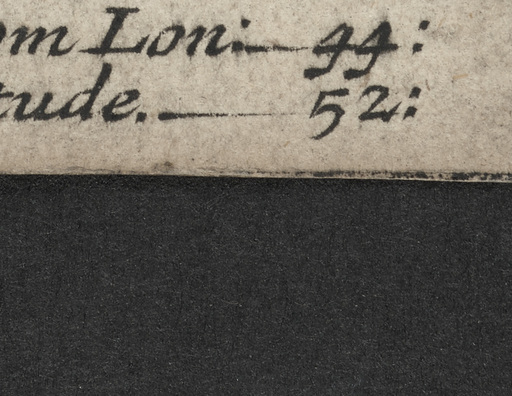 om Lon:— 44:
tude.— 52: